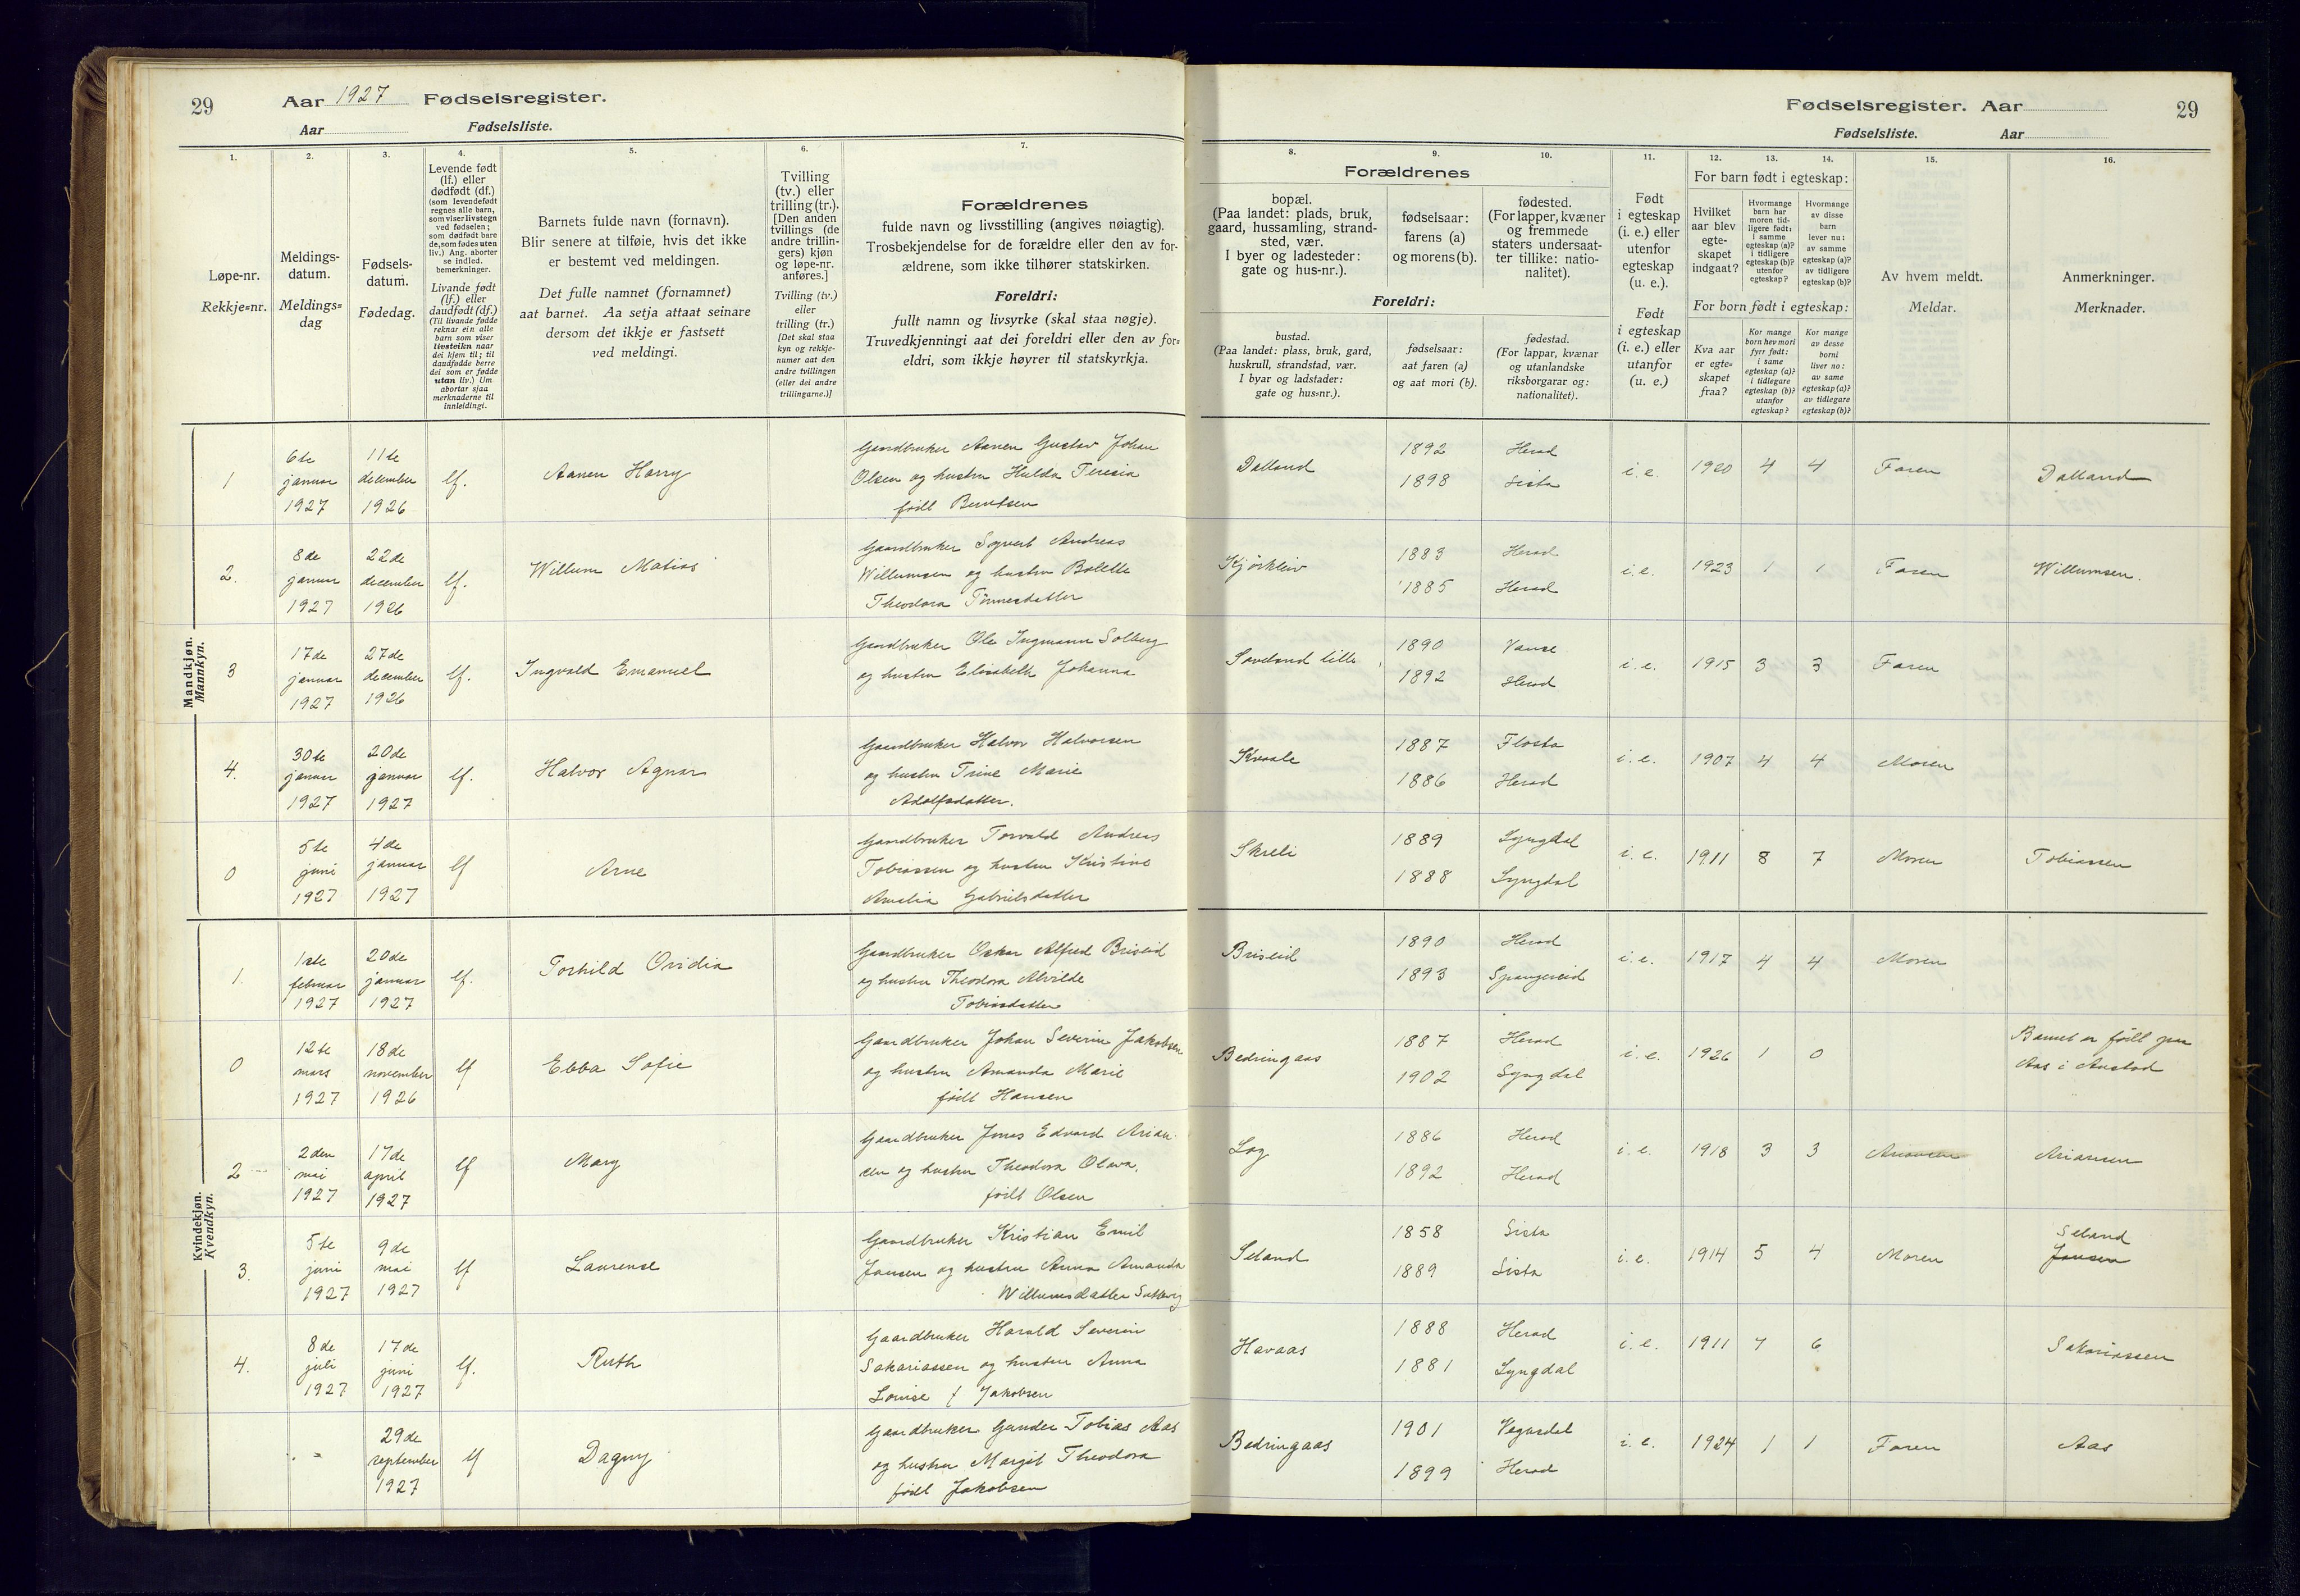 29 Aar 1927 Fødselsregister.
Aar Fødselsliste.
Fødselsregister. Aar 29
Fødselsliste. Aar
1. 2. 3. 4. 5. 6. 7. 8. 9. 10. 11. 12. 13. 14. 15. 16.
Løpe-nr.
Rekkje=nr.
Meldings-
datum.
Meldings=
dag
Fødsels-
datum.
Fødedag.
Levende født
(lf.) eller
dødfødt (df.)
(som levendefødt
regnes alle barn,
som viser livstegn
ved fødselen;
som dødfødt bare
de, som fødes uten
liv.) Ang. aborter
se indled.
bemerkninger.
Livande født
(lf.) eller
daudfødt (df.)
(Til livande fødde
reknar ein alle
barn som viser
livsteikn naar
dei kjem til; til
daudfødde berre
dei som er fødde
utan liv.) Um
abortar sjaa
merknaderne til
innleidingi.
Barnets fulde navn (fornavn).
Blir senere at tilføie, hvis det ikke
er bestemt ved meldingen.
Det fulle namnet (fornamnet)
aat barnet. Aa setja attaat seinare
dersom det ikkje er fastsett
ved meldingi.
Tvilling
(tv.) eller
trilling (tr.).
[Den anden
tvillings (de
andre trillin-
gers) kjøn
og løpe-nr.
anføres.]
Tvilling (tv.)
eller
trilling (tr.)
[Det skal staa
kyn og rekkje-
numer aat den
andre tvillingen
(eller dei andre
trillingarne.)]
Forældrenes
fulde navn og livsstilling (angives nøiagtig).
Trosbekjendelse for de forældre eller den av for-
ældrene, som ikke tilhører statskirken.
Foreldri:
fullt namn og livsyrke (skal staa nøgje).
Truvedkjenningi aat dei foreldri eller den av for=
eldri, som ikkje høyrer til statskyrkja.
Forældrenes
bopæl.
(Paa landet: plads, bruk,
gaard, hussamling, strand-
sted, vær.
I byer og ladesteder:
gate og hus-nr.).
fødselsaar:
farens (a)
og morens (b).
fødested.
(For lapper, kvæner
og fremmede
staters undersaat-
ter tillike: natio-
nalitet).
Foreldri:
bustad.
(Paa landet: plass, bruk, gard,
huskrull, strandstad, vær.
I byar og ladstader:
gate og hus=nr.).
fødselsaar:
aat faren (a)
og aat mori (b).
fødestad.
(For lappar, kvænar
og utanlandske
riksborgarar og:
nationalitet).
Født
i egteskap
(i. e.) eller
utenfor
egteskap
(u. e.).
Født
i egteskap
(i. e.) eller
utanfor
(u. e.)
For barn født i egteskap:
Hvilket
aar blev
egte-
skapet
indgaat?
Hvormange
barn har
moren tid-
ligere født:
i samme
egteskap (a)?
i tidligere
egteskap (b)?
utenfor
egteskap?
Hvormange
av disse
barn
lever nu:
av samme
egteskap (a)?
av tidligere
egteskap (b)?
For born født i egteskap:
Kva aar
er egte=
skapet
fraa?
Kor mange
born hev mori
fyrr født:
i same
egteskap (a)?
i tidlegare
egteskap (b)?
utanfor
egteskap?
Kor mange
av desse
borni
liver no:
av same
egteskap (a)?
av tidlegare
egteskap (b)?
Av hvem meldt.
Meldar.
Anmerkninger.
Merknader.
Mandkjøn.
Mannkyn.
1 6te januar 1927 11te december 1926 lf. Aanen Harry
Gaardbruker Aanen Gustav Johan
Olsen og hustru Hulda Teresia
født Berntsen
Dalland 1892 1898 Herad Lista i. e. 1920 4 4 Faren Dalland
2. 8de januar 1927 22de december 1926 lf. Willum Matias
Gaardbruker Sigvert Andreas
Willumsen og hustru Bolette
Theodora Tønnesdatter
Kjørkleiv 1883 1885 Herad Herad i. e. 1923 1 1 Faren Willumsen.
3 17de januar 1927 27de december 1926 lf. Ingvald Emanuel
Gaardbruker Ole Ingmann Solberg
og hustru Elisabeth Johanna
Søveland lille 1890 1892 Vanse Herad i. e. 1915 3 3 Faren
4. 30te januar 1927 20de januar 1927 lf. Halvor Agnar
Gaardbruker Halvor Halvorsen
og hustru Trine Marie
Adolfsdatter.
Kvaale 1887 1886 Flosta Herad i. e. 1907 4 4 Moren
0 5te juni 1927 4de januar 1927 lf Arne
Gaardbruker Torvald Andreas
Tobiassen og hustru Kristine
Amalia Gabrielsdatter
Skreli 1889 1888 Lyngdal Lyngdal i. e. 1911 8 7 Moren Tobiassen
Kvindekjøn.
Kvendkyn.
1. 1ste februar 1927 20de januar 1927 lf. Torhild Ovidia
Gaardbruker Oskar Alfred Briseid
og hustru Theodora Alvilde
Tobiasdatter
Briseid 1890 1893 Herad Spangereid i. e. 1917 4 4 Moren
0 12te mars 1927 18de november 1926 lf Ebba Sofie
Gaardbruker Johan Severin Jakobsen
og hustru Amanda Marie
født Hansen
Bedringaas 1887 1902 Herad Lyngdal i. e. 1926 1 0
Barnet er født paa
Aas i Austad
2 2den mai 1927 17de april 1927 lf Mary
Gaardbruker Jonas Edvard Arian
sen og hustru Theodora Olava,
født Olsen
Log 1886 1892 Herad Herad i. e. 1918 3 3 Ariansen Ariansen
3. 5te juni 1927 9de mai 1927 lf Laurense
Gaardbruker Kristian Emil
Jansen og hustru Anna Amanda
Willumsdatter
Seland 1858 1889 Lista Lista i. e. 1914 5 4 Moren Seland
Jansen
4. 8de juli 1927 17de juni 1927 lf. Ruth
Gaardbruker Harald Severin
Sakariassen og hustru Anna
Louise f Jakobsen
Havaas 1888 1881 Herad Lyngdal i. e. 1911 7 6 Sakariassen
29de september 1927 lf Dagny
Gaardbruker Gunder Tobias Aas
og hustru Margit Theodora
født Jakobsen
Bedringaas 1901 1899 Vegusdal Herad i. e. 1924 1 1 Faren Aas